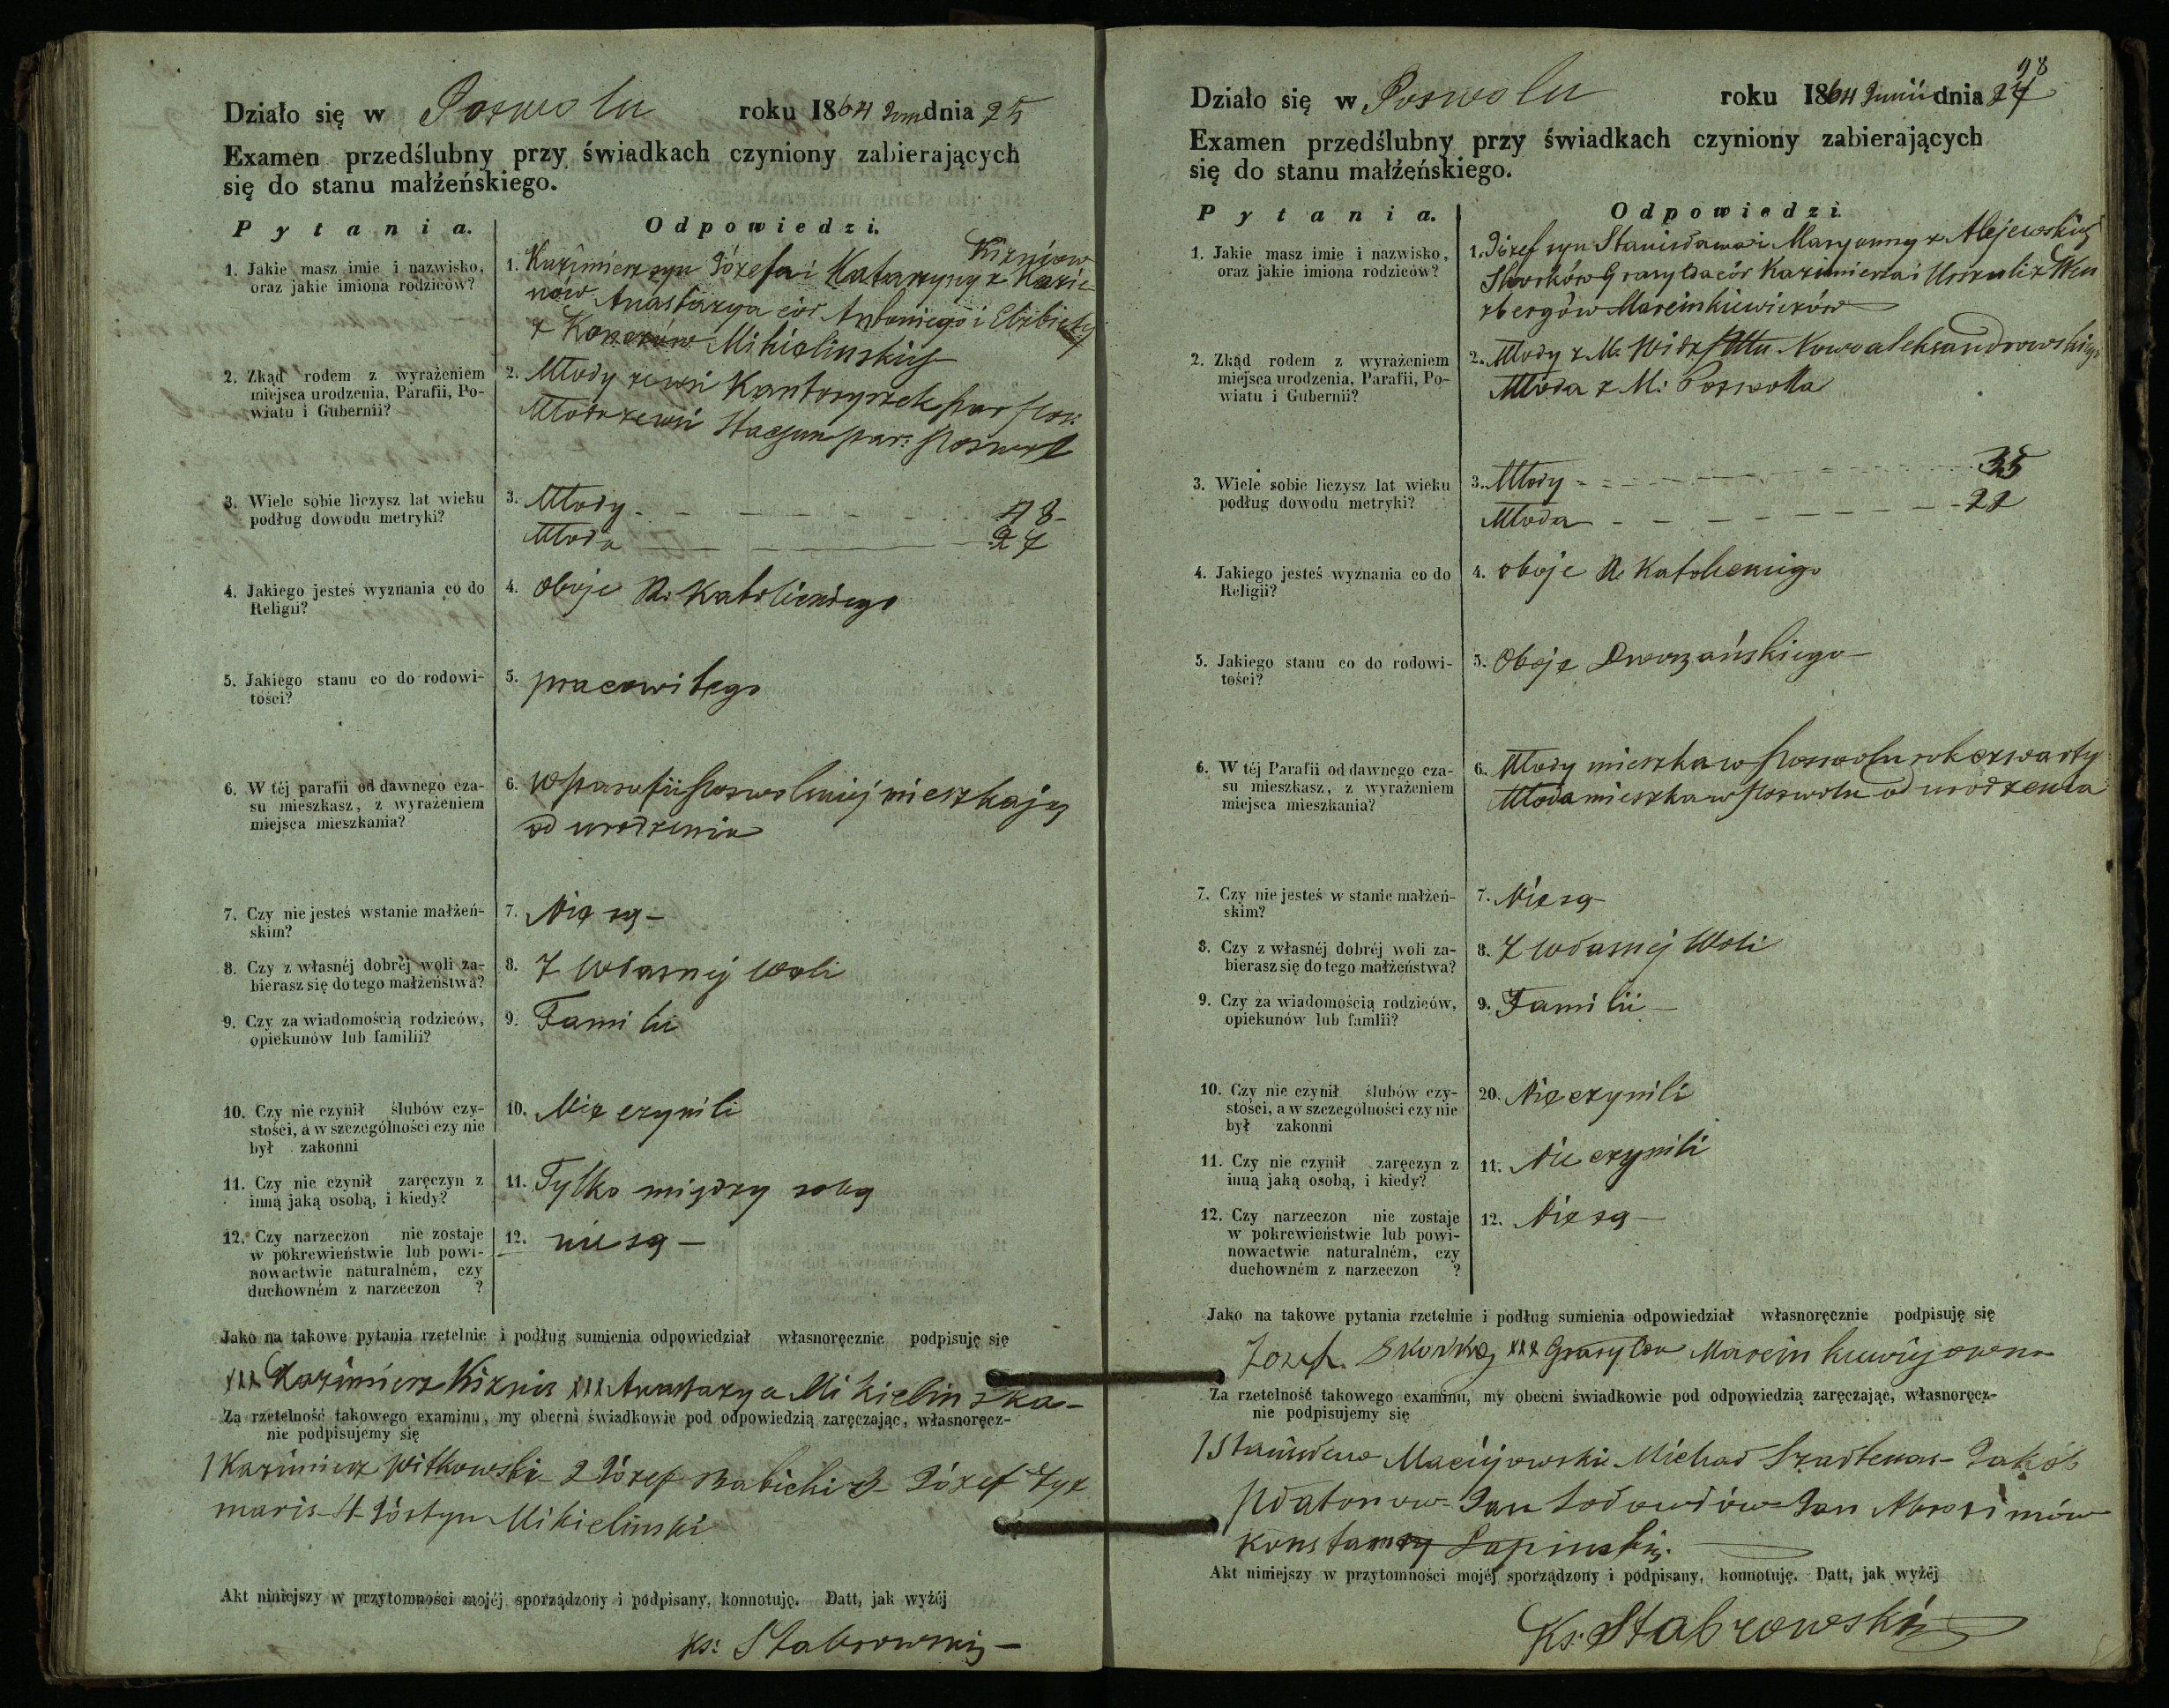 Działo się w Poswolu roku 1864 Juni dnia 25
Examen przedślubny przy świadkach czyniony zabierających
się do stanu małżeńskiego.
Pytania. Odpowiedzi.
1. Jakie masz imie i nazwisko,
oraz jakie imiona rodziców?
1. Kazimierz syn Józefa i Katarzyny z
Anastazya cór Antoniego i Elżbiety
z Mikielinskich
2. Zkąd rodem z wyrażeniem
miejsca urodzenia, Parafii, Po-
wiatu i Gubernii?
2. Młody ze wsi Kantoryszek par Pos:
Młoda ze wsi Stacjun par: Poswol
3. Wiele sobie liczysz lat wieku
podług dowodu metryki?
3. Młody - - - 48-
Młoda - - - 27
4. Jakiego jesteś wyznania co do
Religii?
4. Oboje R. Katolickiego
5. Jakiego stanu co do rodowi-
tości?
5. pracowitego
6. W téj parafii od dawnego cza-
su mieszkasz, z wyrażeniem
miejsca mieszkania?
6. W parafii Poswolskiej mieszkają
od urodzenia
7. Czy nie jesteś wstanie małżeń-
skim?
7. Nie są -
8. Czy z własnéj dobréj woli za-
bierasz się do tego małżeństwa?
8. Z Własnej Woli
9. Czy za wiadomością rodziców,
opiekunów lub familii?
9. Familii
10. Czy nie czynił ślubów czy-
stości, a w szczególności czy nie
był zakonni
10. Nie czynili
11. Czy nie czynił zaręczyn z
inną jaką osobą, i kiedy?
11. Tylko między sobą
12. Czy narzeczon nie zostaje
w pokrewieństwie lub powi-
nowactwie naturalném, czy
duchowném z narzeczon ?
12. nie są -
Jako na takowe pytania rzetelnie i podług sumienia odpowiedział własnoręcznie podpisuję się
XXX Kazimierz Kiznis XXX Anastazya Mikielinska -
Za rzetelność takowego examinu, my obecni świadkowie pod odpowiedzią zaręczając, własnoręcz-
nie podpisujemy się
1 Kazimierz Witkowski 2 Józef Babicki 3 Józef Żyż
maris 4 Jóstyn Mikielinski
Akt niniejszy w przytomności mojéj sporządzony i podpisany, konnotuję. Datt, jak wyżéj
Ks: Stabrowski -
98
Działo się w Poswolu roku 1864 Junii dnia 27
Examen przedślubny przy świadkach czyniony zabierających
się do stanu małżeńskiego.
Pytania. Odpowiedzi.
1. Jakie masz imie i nazwisko,
oraz jakie imiona rodziców?
1. Józef syn Stanisława i Maryanny z Alejewskich
Skorków Grasylda cór Kazimierza i Urszuli z
Marcinkiewiczów
2. Zkąd rodem z wyrażeniem
miejsca urodzenia, Parafii, Po-
wiatu i Gubernii?
2. Młody z M. Widz Pttu Nowoaleksandrowskiego
Młoda z M: Poswola
3. Wiele sobie liczysz lat wieku
podług dowodu metryki?
3. Młody - - - 35
Młoda - - - 22
4. Jakiego jesteś wyznania co do
Religii?
4. oboje R. Katolickiego
5. Jakiego stanu co do rodowi-
tości?
5. Oboje Dworzańskiego -
6. W téj Parafii od dawnego cza-
su mieszkasz, z wyrażeniem
miejsca mieszkania?
6. Młody mieszka w Poswolu rok czwarty
Młoda mieszka w Poswolu od urodzenia
7. Czy nie jesteś w stanie małżeń-
skim?
7. Nie są -
8. Czy z własnéj dobréj woli za-
bierasz się do tego małżeństwa?
8. Z Własnej Woli
9. Czy za wiadomością rodziców,
opiekunów lub famlii?
9. Familii -
10. Czy nie czynił ślubów czy-
stości, a w szczególności czy nie
był zakonni
20. Nie czynili
11. Czy nie czynił zaręczyn z
inną jaką osobą, i kiedy?
11. Nie czynili
12. Czy narzeczon nie zostaje
w pokrewieństwie lub powi-
nowactwie naturalném, czy
duchowném z narzeczon ?
12. Nie są -
Jako na takowe pytania rzetelnie i podług sumienia odpowiedział własnoręcznie podpisuję się
Jozef Skorka XXX Grasylda
Za rzetelność takowego examinu, my obecni świadkowie pod odpowiedzią zaręczając, własnoręcz-
nie podpisujemy się
1 Stanisław Maciejowski Michał Jakób
Płatonow Jan Jan
Konstanty Lapinski
Akt niniejszy w przytomności mojéj sporządzony i podpisany, konnotuję. Datt, jak wyżéj
Ks: Stabrowski